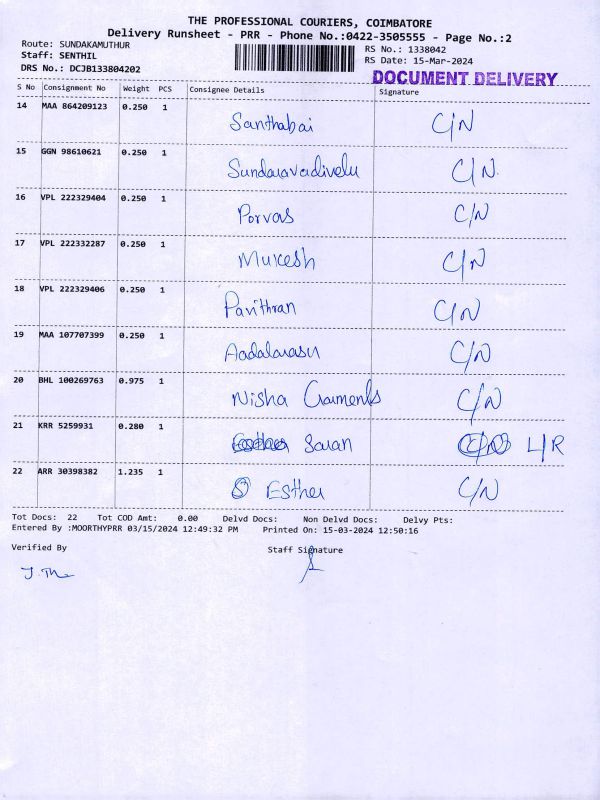 THE PROFESSIONAL COURIERS, COIMBATORE
Delivery Runsheet - PRR - Phone No.:0422-3505555 - Page No.:2
Route: SUNDAKAMUTHUR RS No.: 1338042
Staff: SENTHIL RS Date: 15-Mar-2024
DRS No.: DCJB133804202
DOCUMENT DELIVERY
S No Consignment No Weight PCS Consignee Details Signature
14 MAA 864209123 0.250 1 Santhabai C/N
15 GGN 98610621 0.250 1 Sundaravadivelu C/N.
16 VPL 222329404 0.250 1 Porvas C/N
17 VPL 222332287 0.250 1 Mukesh C/N
18 VPL 222329406 0.250 1 Pavithran C/N
19 MAA 107707399 0.250 1 C/N
20 BHL 100269763 0.975 1 Nisha Garments C/N
21 KRR 5259931 0.280 1 Saran L/R
22 ARR 30398382 1.235 1 Esther C/N
Tot Docs: 22 Tot COD Amt: 0.00 Delvd Docs: Non Delvd Docs: Delvy Pts:
Entered By :MOORTHYPRR 03/15/2024 12:49:32 PM Printed On: 15-03-2024 12:50:16
Verified By Staff Signature